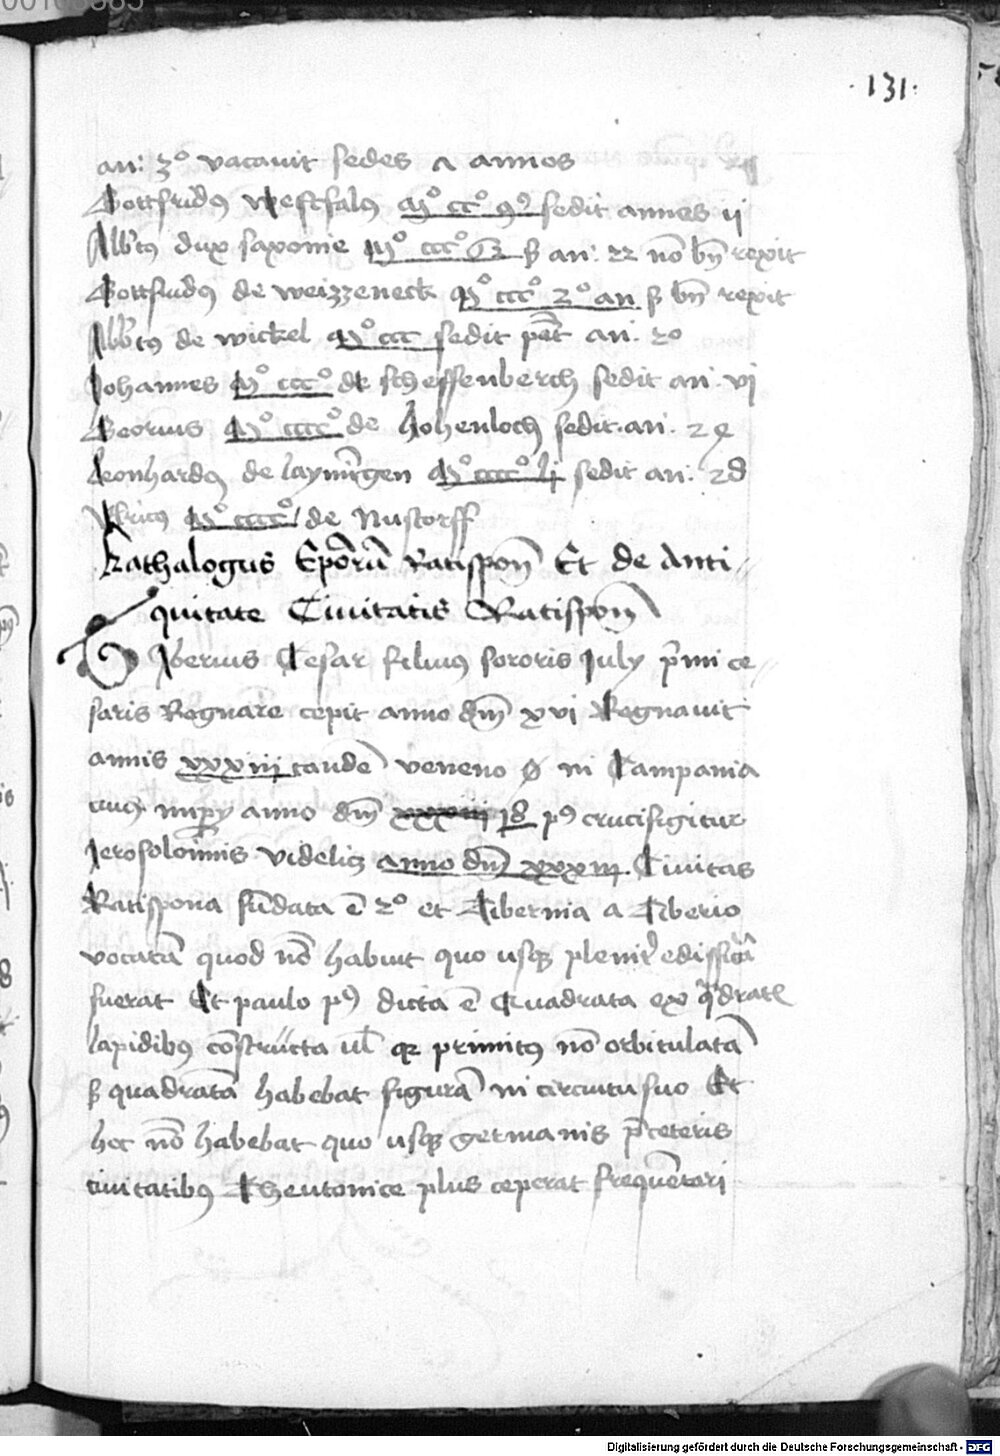 ·131·
an: 3° vacavit sedes a annos
Gottfridus Westfalus M° cc° sedit annos ii
Albtus dux saxonie M° ccc° s an: 22 no bn rexit
Gottfridus de weizzeneck M° ccc° 2° an s bn rexit
Albtus de wickel M° ccc sedit an: 20
Johannes M° ccc° de scheffenberch sedit an: vi
Georius M° cccc° de hohenloch sedit an:
Leonhardus de laymingen M° cccc° li sedit an:
Ulricus M° cccc° de Nustorff
Kathalogus Eporum Ratispon Et de Anti
quitate Civitatis Ratispon
Tiberius Cesar filius sororis July primi ce
saris Regnare cepit anno dm xvi Regnavit
annis xxxiii tande veneno ø in Campania
cuius anno dm 18 p9 crucifigitur
Jerosolomis videlicz anno dm xxxiii. Civitas
Ratispona fudata e 2° et Tibernia a Tiberio
vocata quod no habuit quo usque plenir edifficata
fuerat Et paulo p9 dicta e Quadrata ex qdratis
lapidibus constructa vl qr primitus non orbiculata
s quadrata habebat figura in circuitu suo Et
hec no habebat quo usque germanis pceteris
civitatibus Theutonice plus ceperat frequentari
Digitalisierung gefördert durch die Deutsche Forschungsgemeinschaft - DFG